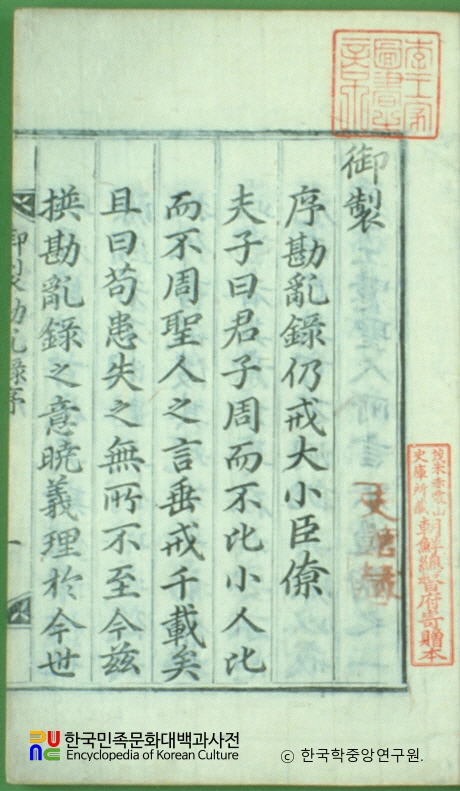 御製
序勘亂錄仍戒大小臣僚
夫子曰君子周而不比小人比
而不周聖人之言垂戒千載矣
且曰苟患失之無所不至今玆
撰勘亂錄之意曉義理於今世
御製勘亂錄序
一
李王家圖書之章
茂朱赤裳山
史庫所藏朝鮮總督府寄贈本
한국민족문화대백과사전
Encyclopedia of Korean Culture
© 한국학중앙연구원.